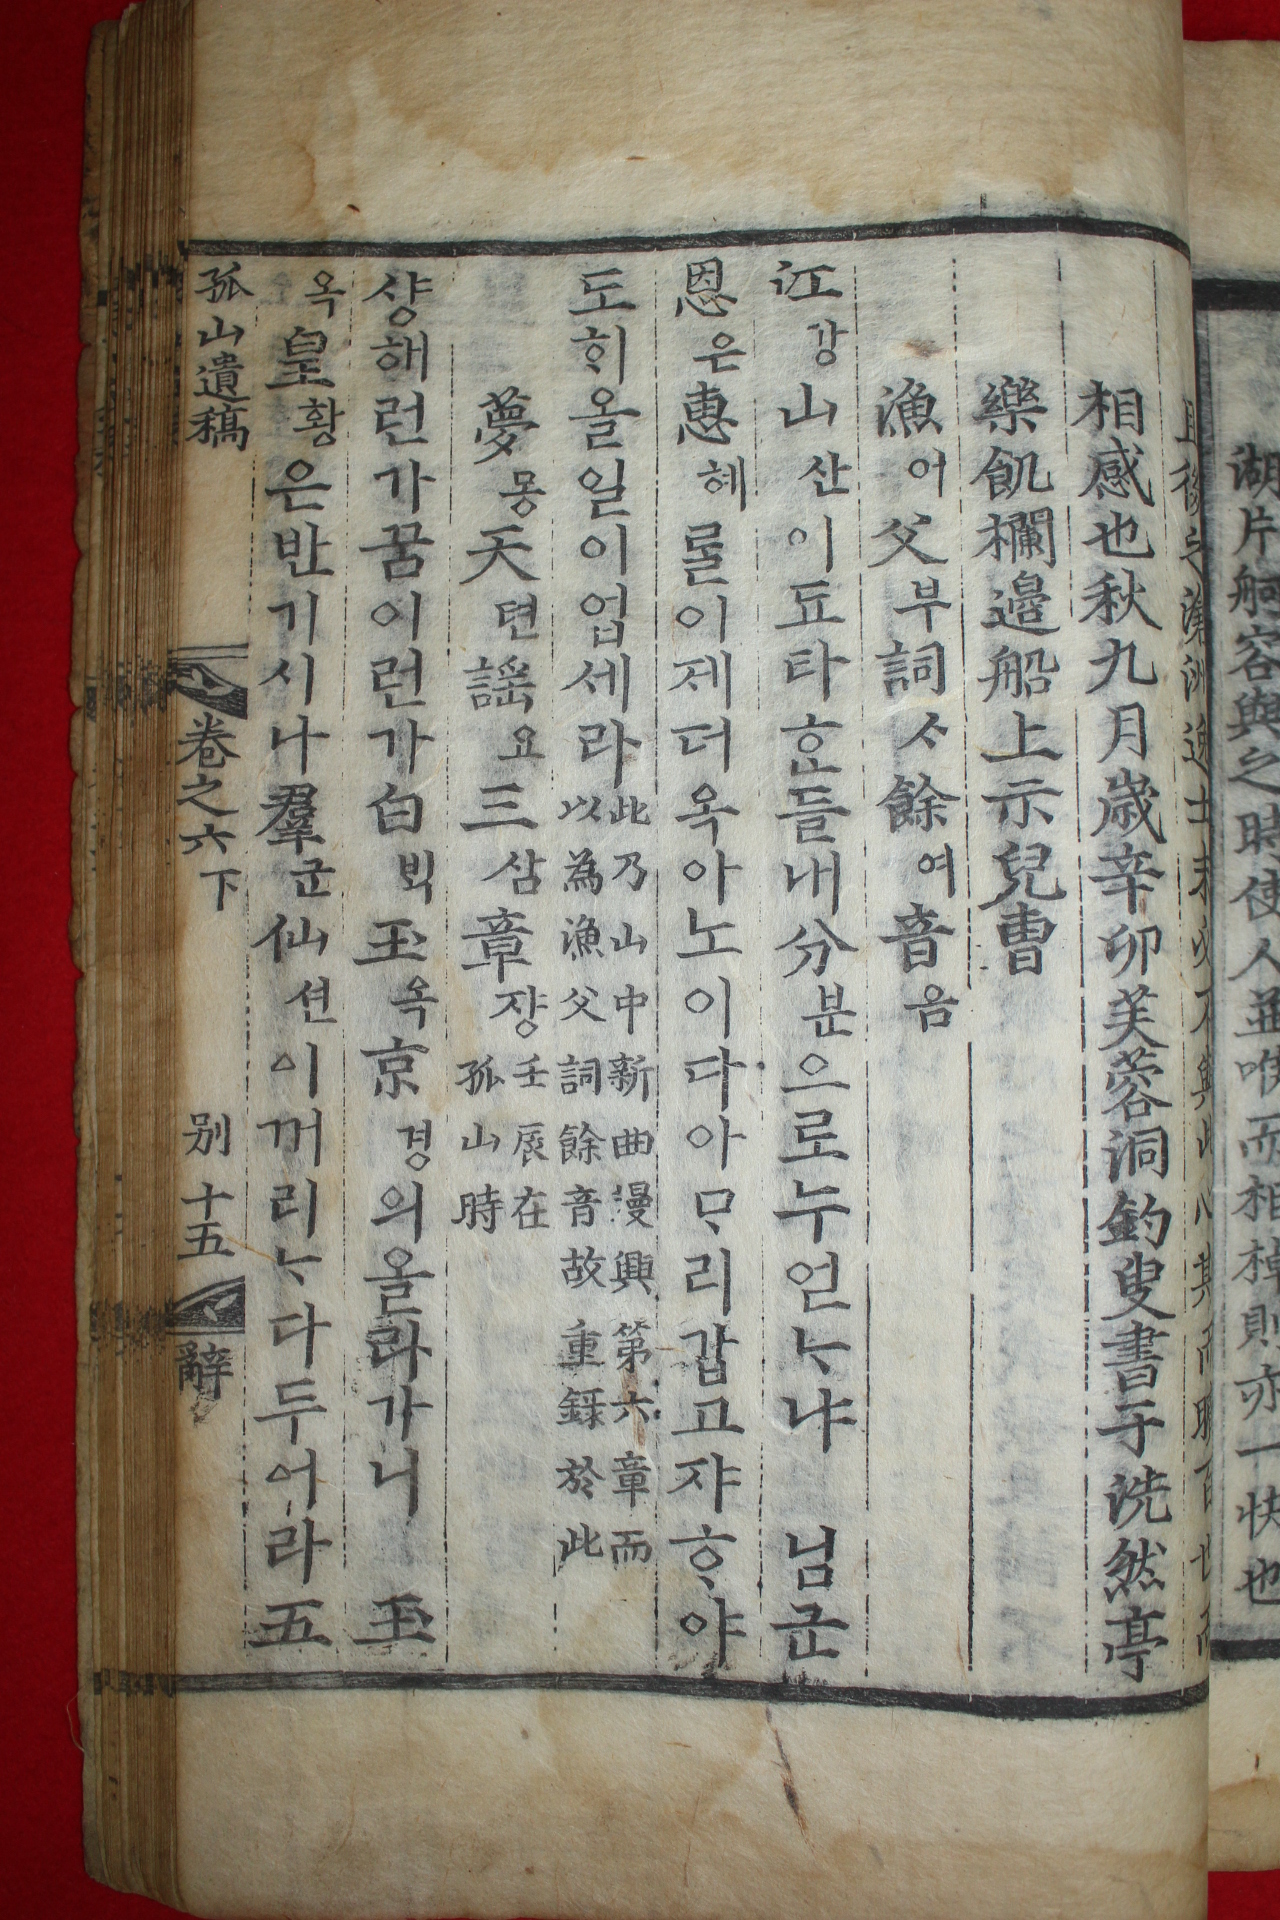 湖片舸容與之時使人並喉而相棹則亦一快也
且後之滄洲逸士未必不與此心期而曠百世而
相感也秋九月歲辛卯芙蓉洞釣叟書于洗然亭
樂飢欄邊船上示兒曹
漁어父부詞ᄉᆞ餘여音음
江강山산이됴타ᄒᆞᆫ들내分분으로누얻ᄂᆞ냐 님군
恩은惠혜ᄅᆞᆯ이제더옥아노이다아ᄆᆞ리갑고쟈ᄒᆞ야
도ᄒᆡ올일이업세라
此乃山中新曲漫興第六章而
以為漁父詞餘音故重錄於此
夢몽天텬謠요三삼章쟝
壬辰在
孤山時
샹해런가꿈이런가白ᄇᆡᆨ玉옥京경의올라가니 玉
옥皇황은반기시나羣군仙션이꺼리ᄂᆞ다두어라五
孤山遺稿 卷之六下 別 十五 辭